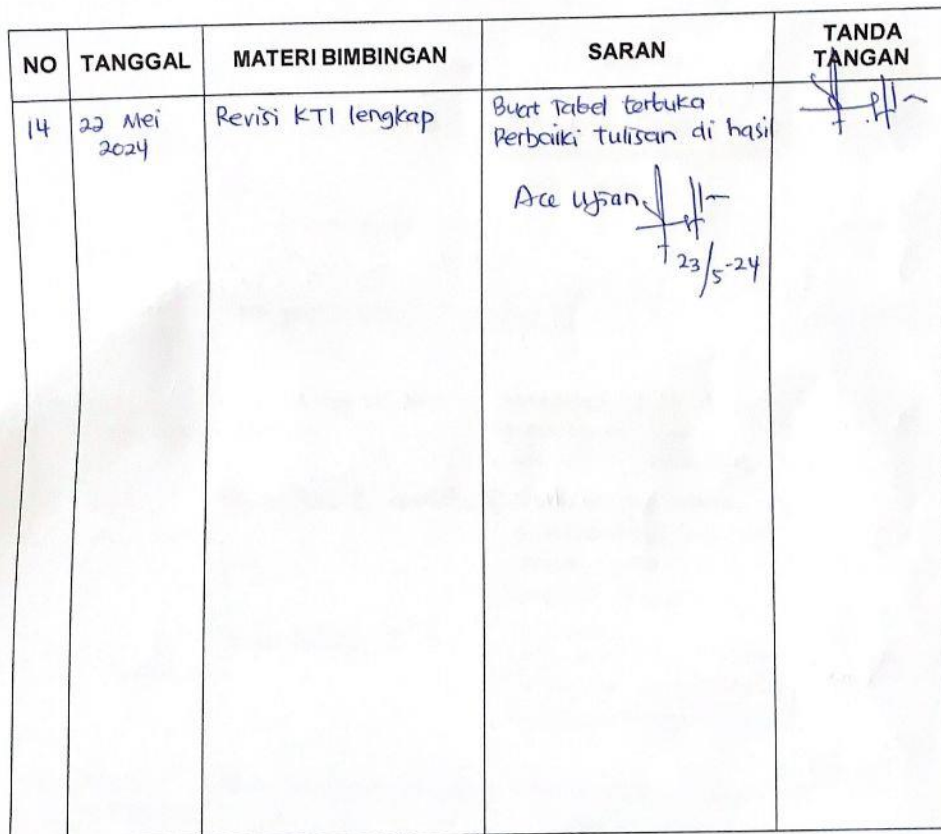 NO TANGGAL MATERI BIMBINGAN SARAN TANDA TANGAN
14 22 Mei 2024 Revisi KTI lengkap Buat Tabel terbuka
Perbaiki Tulisan di hasil
Acc Ujian
23/5-24